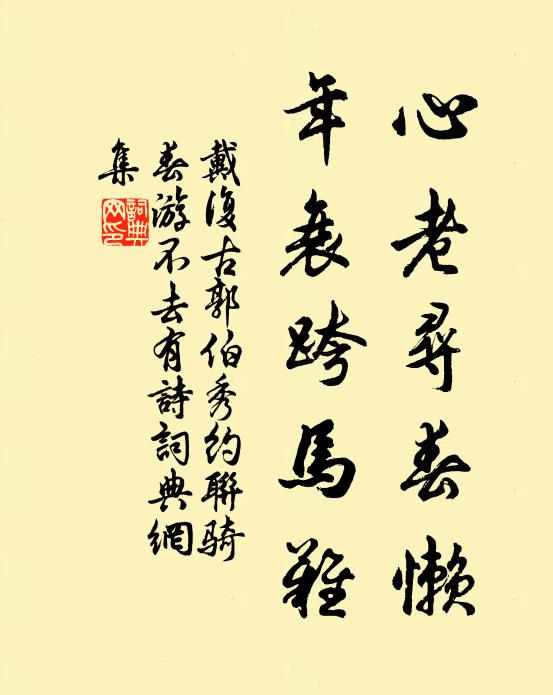 心老尋春懶
年衰跨馬難
戴復古郭伯秀約聯騎
春游不去有詩詞典網
集
詞典
网印